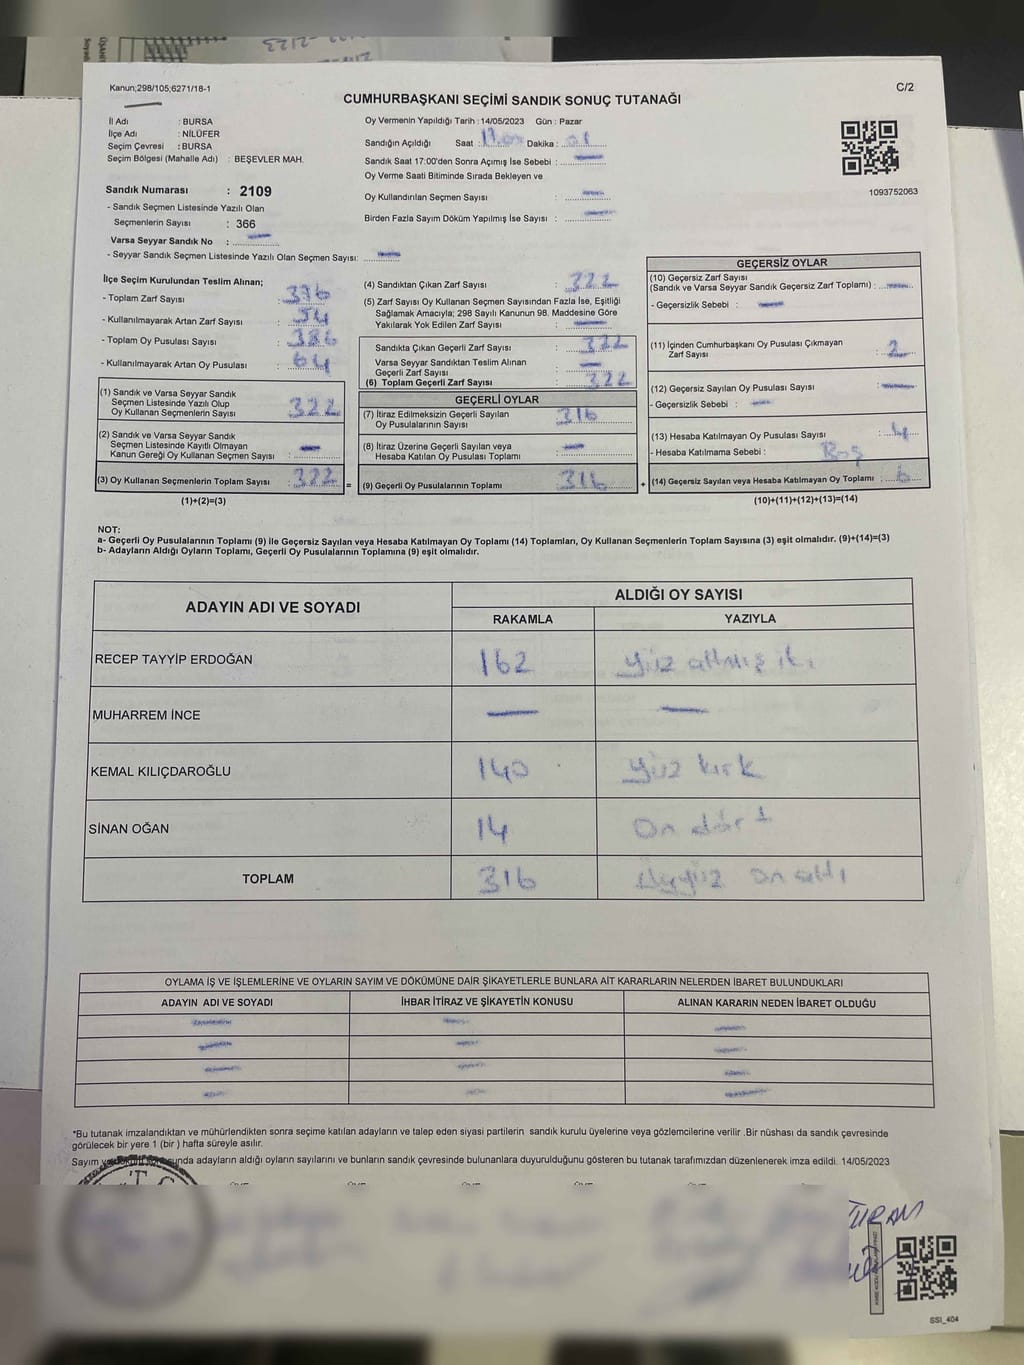 Kanun;298/105;6271/18-1
C/2
CUMHURBAŞKANI SEÇİMİ SANDIK SONUÇ TUTANAĞI
İl Adı : BURSA
İlçe Adı : NİLÜFER
Seçim Çevresi : BURSA
Seçim Bölgesi (Mahalle Adı) : BEŞEVLER MAH.
Sandık Numarası : 2109
- Sandık Seçmen Listesinde Yazılı Olan
Seçmenlerin Sayısı : 366
Varsa Seyyar Sandık No :
- Seyyar Sandık Seçmen Listesinde Yazılı Olan Seçmen Sayısı:
Oy Vermenin Yapıldığı Tarih : 14/05/2023 Gün : Pazar
Sandığın Açıldığı Saat : 17.00 Dakika : 01
Sandık Saat 17:00'den Sonra Açımış İse Sebebi :
Oy Verme Saati Bitiminde Sırada Bekleyen ve
Oy Kullandırılan Seçmen Sayısı :
Birden Fazla Sayım Döküm Yapılmış İse Sayısı :
1093752063
İlçe Seçim Kurulundan Teslim Alınan;
- Toplam Zarf Sayısı : 376
- Kullanılmayarak Artan Zarf Sayısı : 54
- Toplam Oy Pusulası Sayısı : 386
- Kullanılmayarak Artan Oy Pusulası : 64
(1) Sandık ve Varsa Seyyar Sandık
Seçmen Listesinde Yazılı Olup
Oy Kullanan Seçmenlerin Sayısı : 322
(2) Sandık ve Varsa Seyyar Sandık
Seçmen Listesinde Kayıtlı Olmayan
Kanun Gereği Oy Kullanan Seçmen Sayısı :
(3) Oy Kullanan Seçmenlerin Toplam Sayısı : 322
(1)+(2)=(3)
=
(4) Sandıktan Çıkan Zarf Sayısı : 322
(5) Zarf Sayısı Oy Kullanan Seçmen Sayısından Fazla İse, Eşitliği
Sağlamak Amacıyla; 298 Sayılı Kanunun 98. Maddesine Göre
Yakılarak Yok Edilen Zarf Sayısı :
Sandıkta Çıkan Geçerli Zarf Sayısı : 322
Varsa Seyyar Sandıktan Teslim Alınan
Geçerli Zarf Sayısı :
(6) Toplam Geçerli Zarf Sayısı : 322
GEÇERLİ OYLAR
(7) İtiraz Edilmeksizin Geçerli Sayılan
Oy Pusulalarının Sayısı : 316
(8) İtiraz Üzerine Geçerli Sayılan veya
Hesaba Katılan Oy Pusulası Toplamı :
(9) Geçerli Oy Pusulalarının Toplamı : 316
+
GEÇERSİZ OYLAR
(10) Geçersiz Zarf Sayısı
(Sandık ve Varsa Seyyar Sandık Geçersiz Zarf Toplamı) :
- Geçersizlik Sebebi :
(11) İçinden Cumhurbaşkanı Oy Pusulası Çıkmayan
Zarf Sayısı : 2
(12) Geçersiz Sayılan Oy Pusulası Sayısı :
- Geçersizlik Sebebi :
(13) Hesaba Katılmayan Oy Pusulası Sayısı : 4
- Hesaba Katılmama Sebebi : Boş
(14) Geçersiz Sayılan veya Hesaba Katılmayan Oy Toplamı : 6
(10)+(11)+(12)+(13)=(14)
NOT:
a- Geçerli Oy Pusulalarının Toplamı (9) İle Geçersiz Sayılan veya Hesaba Katılmayan Oy Toplamı (14) Toplamları, Oy Kullanan Seçmenlerin Toplam Sayısına (3) eşit olmalıdır. (9)+(14)=(3)
b- Adayların Aldığı Oyların Toplamı, Geçerli Oy Pusulalarının Toplamına (9) eşit olmalıdır.
ADAYIN ADI VE SOYADI
ALDIĞI OY SAYISI
RAKAMLA YAZIYLA
RECEP TAYYİP ERDOĞAN 162 yüz altmış iki
MUHARREM İNCE
KEMAL KILIÇDAROĞLU 140 yüz kırk
SİNAN OĞAN 14 On dört
TOPLAM 316 üçyüz on altı
OYLAMA İŞ VE İŞLEMLERİNE VE OYLARIN SAYIM VE DÖKÜMÜNE DAİR ŞİKAYETLERLE BUNLARA AİT KARARLARIN NELERDEN İBARET BULUNDUKLARI
ADAYIN ADI VE SOYADI İHBAR İTİRAZ VE ŞİKAYETİN KONUSU ALINAN KARARIN NEDEN İBARET OLDUĞU
*Bu tutanak imzalandıktan ve mühürlendikten sonra seçime katılan adayların ve talep eden siyasi partilerin sandık kurulu üyelerine veya gözlemcilerine verilir .Bir nüshası da sandık çevresinde
görülecek bir yere 1 (bir ) hafta süreyle asılır.
Sayım adayların aldığı oyların sayılarını ve bunların sandık çevresinde bulunanlara duyurulduğunu gösteren bu tutanak tarafımızdan düzenlenerek imza edildi. 14/05/2023
SSI_404